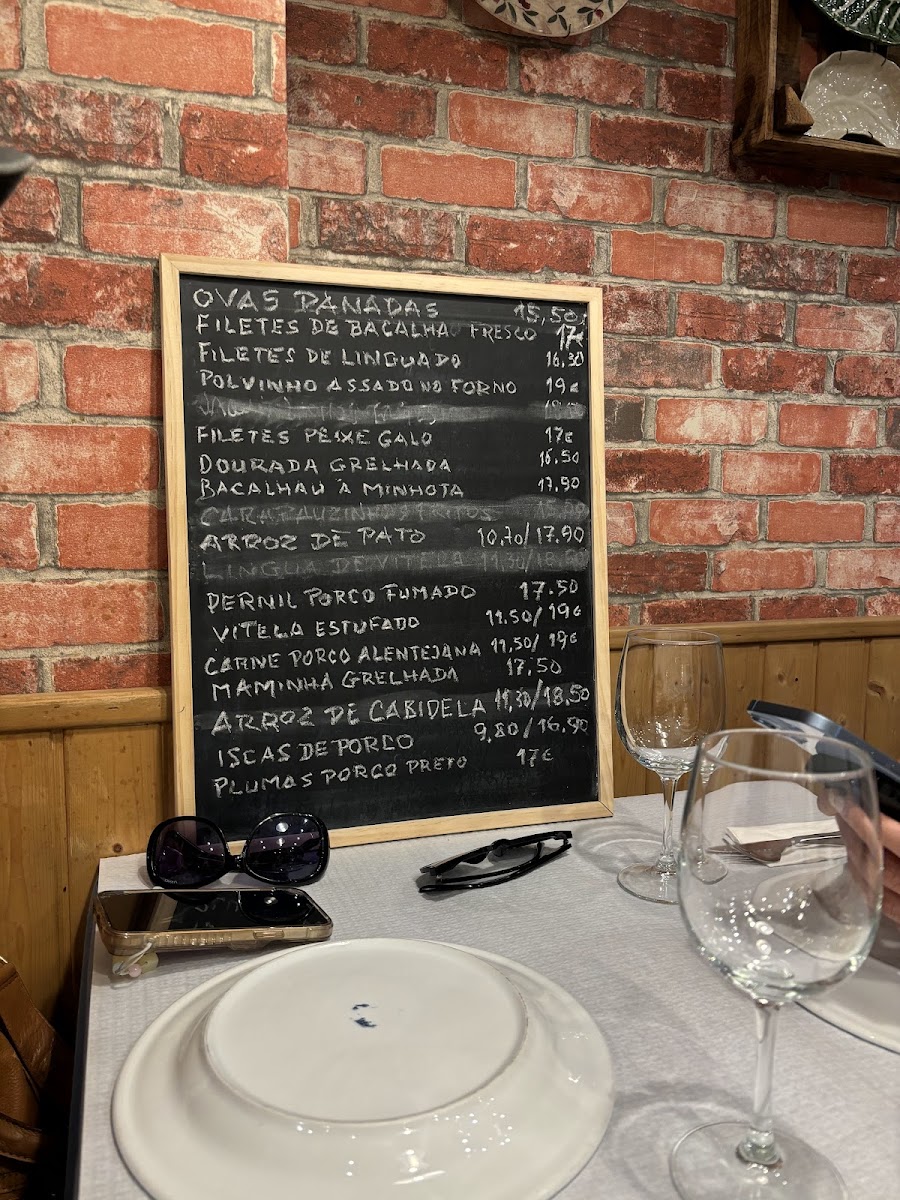 OVAS PANADAS 15,50
FILETES DE BACALHAU FRESCO 17€
FILETES DE LINGUADO 16,30
POLVINHO ASSADO NO FORNO 19€
FILETES PEIXE GALO 17€
DOURADA GRELHADA 16.50
BACALHAU À MINHOTA 17,90
CARAPAUZINHOS FRITOS
ARROZ DE PATO 10.70/17.90
LINGUA DE VITELA 11,50/18.90
PERNIL PORCO FUMADO 17.50
VITELA ESTUFADO 11.50/19€
CARNE PORCO ALENTEJANA 11,50/19€
MAMINHA GRELHADA 17,50
ARROZ DE CABIDELA 11,30/18,50
ISCAS DE PORCO 9,80/16,90
PLUMAS PORCO PRETO 17€